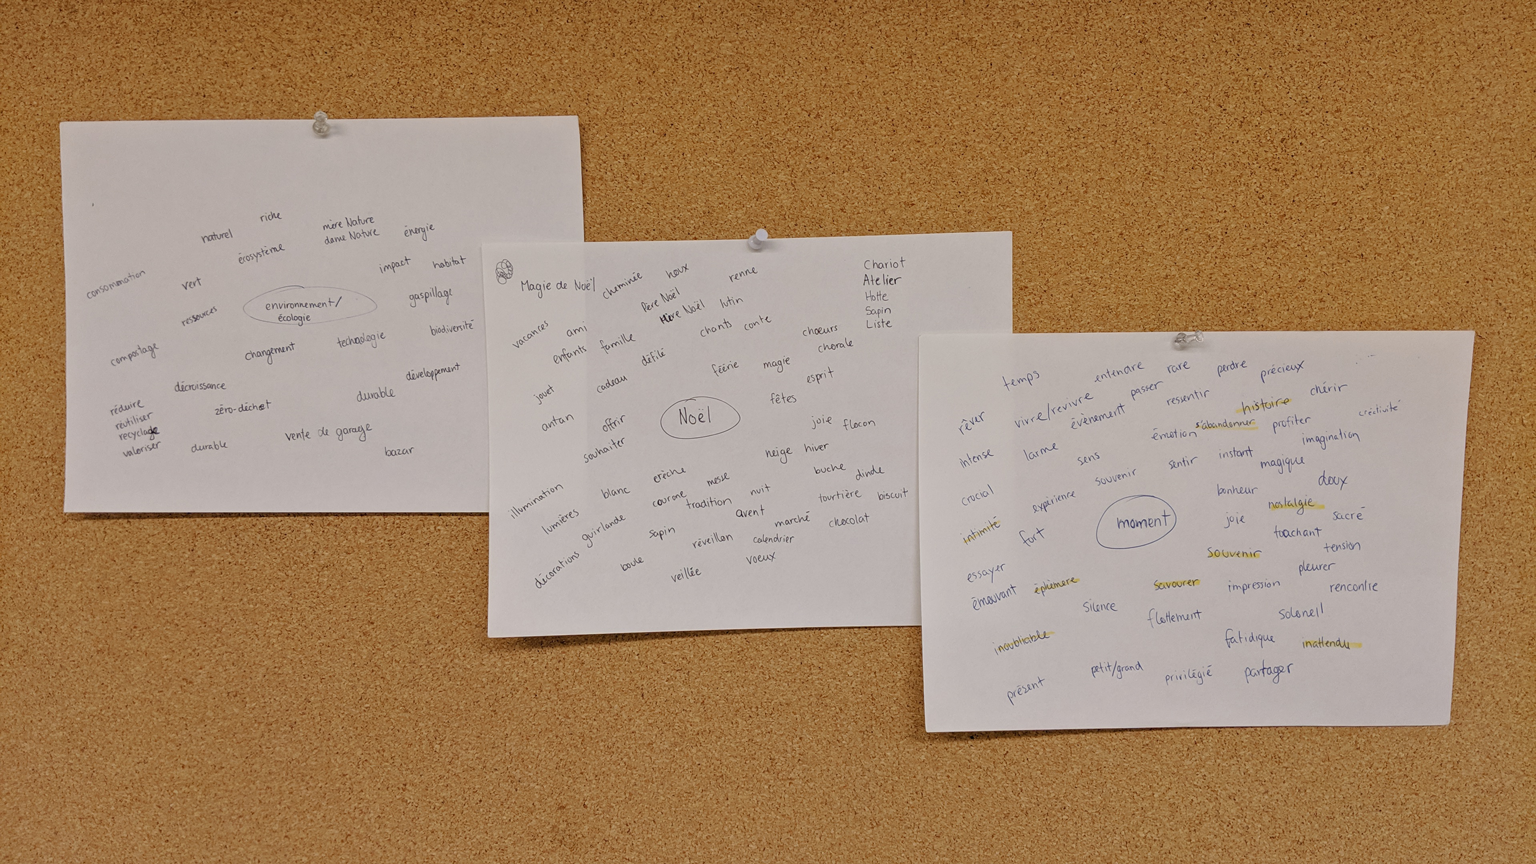 riche
naturel
mère Nature
dame Nature
énergie
écosystème
consommation
vert
impact
habitat
environnement/
écologie
gaspillage
ressources
biodiversité
compostage
changement
technologie
décroissance
développement
réduire
réutiliser
recyclage
valoriser
zéro-déchet
durable
durable
vente de garage
bazar
Magie de Noël
cheminée
houx
renne
Chariot
Atelier
Hotte
Sapin
Liste
Père Noël
Mère Noël
lutin
vacances
ami
enfants
famille
chants
conte
choeurs
chorale
défilé
féérie
magie
esprit
jouet
cadeau
fêtes
antan
offrir
Noël
joie
flocon
souhaiter
neige
hiver
crèche
messe
buche
dinde
illumination
blanc
couronne
tradition
nuit
tourtière
biscuit
lumières
guirlande
sapin
avent
marché
chocolat
réveillon
calendrier
décorations
boule
veillée
voeux
temps
entendre
rare
perdre
précieux
rêver
vivre/revivre
évènement
passer
ressentir
histoire
chérir
créativité
s'abandonner
profiter
intense
larme
émotion
imagination
sens
souvenir
sentir
instant
magique
crucial
expérience
bonheur
doux
intimité
fort
moment
joie
nostalgie
sacré
touchant
souvenir
tension
essayer
pleurer
émouvant
éphémère
savourer
impression
rencontre
silence
flottement
solennel
inoubliable
fatidique
inattendu
présent
petit/grand
privilégié
partager